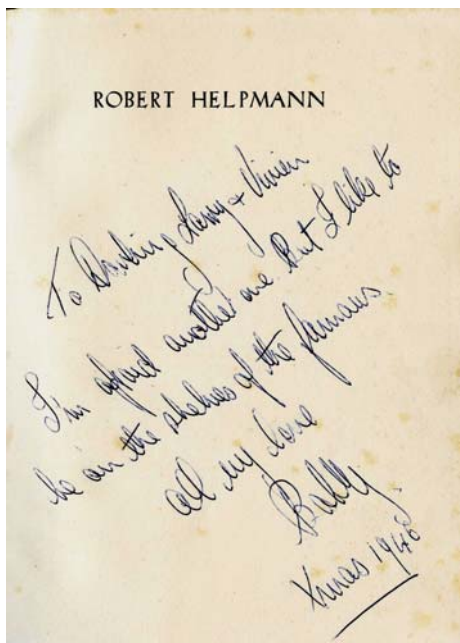 ROBERT HELPMANN
To Darling Larry + Vivien
I'm afraid another one But I like to
be on the shelves of the famous.
all my love
Bobby.
Xmas 1946